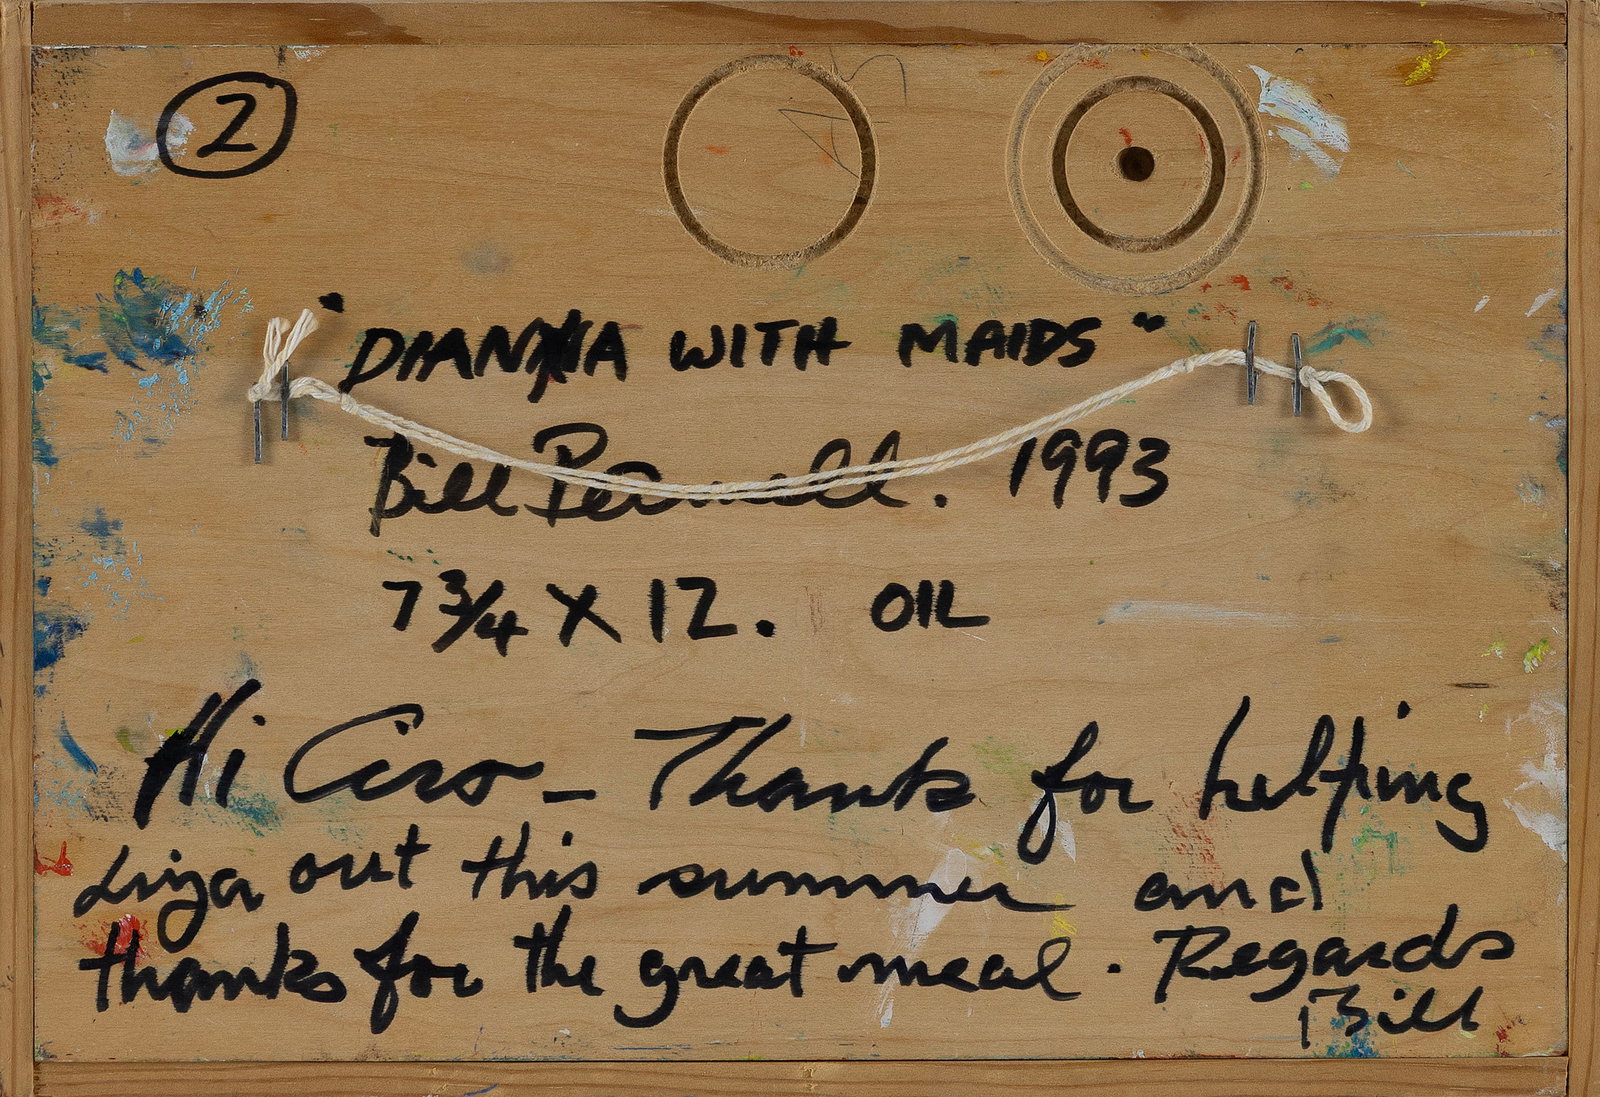 2
"DIANA WITH MAIDS"
Bill . 1993
7 3/4 X 12. OIL
Hi Ciro - Thanks for helping
Liza out this summer and
thanks for the great meal. Regards
Bill